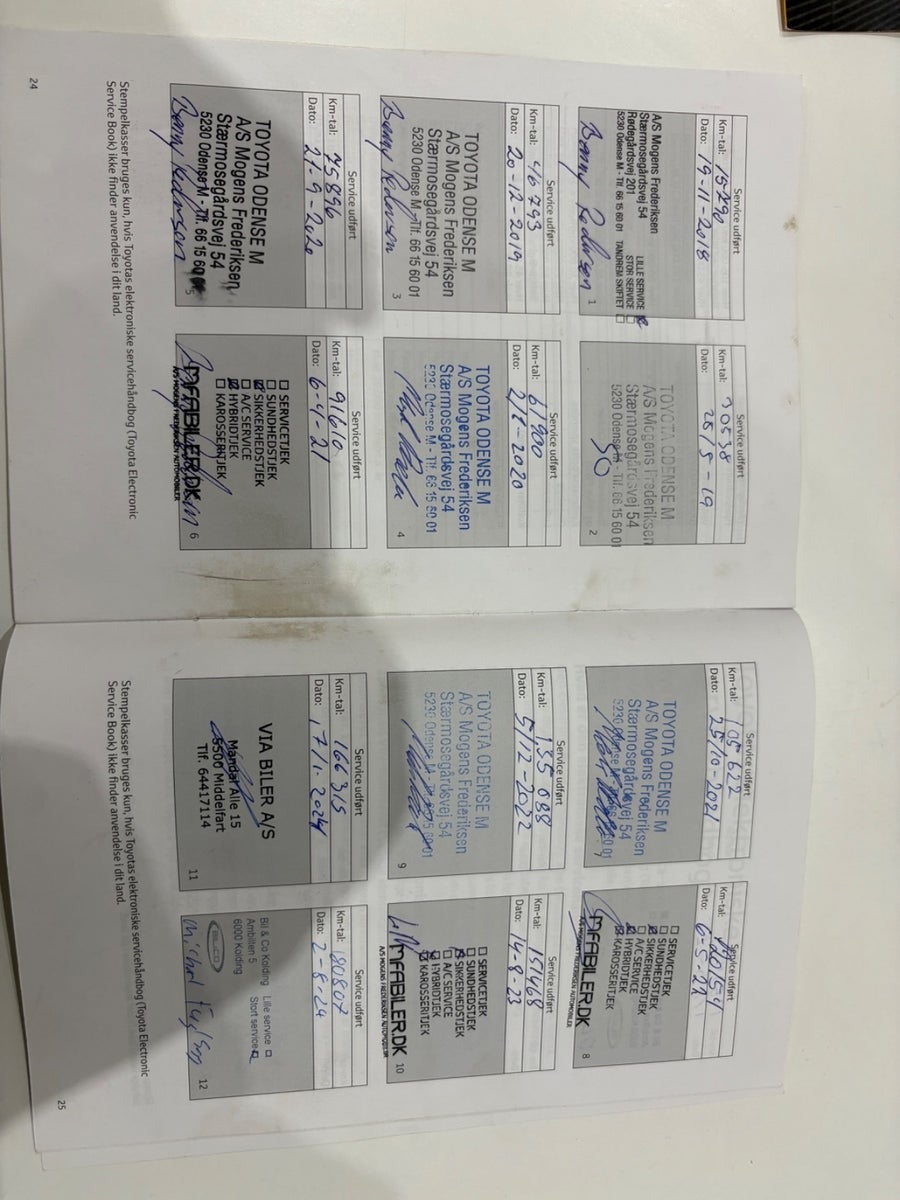 Service udført
Km-tal: 15290
Dato: 19-11-2018
A/S Mogens Frederiksen
Stærmosegårdsvej 54
Rødegårdsvej 201
5230 Odense M - Tlf. 66 15 60 01
LILLE SERVICE
STOR SERVICE
TANDREM SKIFTET
1
Service udført
Km-tal: 30538
Dato: 28/5-19
TOYOTA ODENSE M
A/S Mogens Frederiksen
Stærmosegårdsvej 54
5230 Odense M - Tlf. 66 15 60 01
2
Service udført
Km-tal: 46793
Dato: 20-12-2019
TOYOTA ODENSE M
A/S Mogens Frederiksen
Stærmosegårdsvej 54
5230 Odense M - Tlf. 66 15 60 01
3
Service udført
Km-tal: 61900
Dato: 2/6-2020
TOYOTA ODENSE M
A/S Mogens Frederiksen
Stærmosegårdsvej 54
5230 Odense M - Tlf. 66 15 60 01
4
Service udført
Km-tal: 75896
Dato: 21-9-2020
TOYOTA ODENSE M
A/S Mogens Frederiksen
Stærmosegårdsvej 54
5230 Odense M - Tlf. 66 15 60 01
5
Service udført
Km-tal: 91610
Dato: 6-4-21
SERVICETJEK
SUNDHEDSTJEK
SIKKERHEDSTJEK
A/C SERVICE
HYBRIDTJEK
KAROSSERITJEK
MFABILER.DK
A/S MOGENS FREDERIKSEN AUTOMOBILER
6
Stempelkasser bruges kun, hvis Toyotas elektroniske servicehåndbog (Toyota Electronic
Service Book) ikke finder anvendelse i dit land.
24
Service udført
Km-tal: 105622
Dato: 25/10-2021
TOYOTA ODENSE M
A/S Mogens Frederiksen
Stærmosegårdsvej 54
5230 Odense M - Tlf. 66 15 60 01
Service udført
Km-tal:
Dato: 6-5-22
SERVICETJEK
SUNDHEDSTJEK
SIKKERHEDSTJEK
A/C SERVICE
HYBRIDTJEK
KAROSSERITJEK
MFABILER.DK
A/S MOGENS FREDERIKSEN AUTOMOBILER
8
Service udført
Km-tal: 135088
Dato: 5/12-2022
TOYOTA ODENSE M
A/S Mogens Frederiksen
Stærmosegårdsvej 54
5230 Odense M - Tlf. 66 15 60 01
9
Service udført
Km-tal: 151468
Dato: 14-8-23
SERVICETJEK
SUNDHEDSTJEK
SIKKERHEDSTJEK
A/C SERVICE
HYBRIDTJEK
KAROSSERITJEK
MFABILER.DK
A/S MOGENS FREDERIKSEN AUTOMOBILER
10
Service udført
Km-tal: 166315
Dato: 17/1. 2024
VIA BILER A/S
Mandal Alle 15
5500 Middelfart
Tlf. 64417114
11
Service udført
Km-tal: 180807
Dato: 2-8-24
Bil & Co Kolding
Ambolten 5
6000 Kolding
Lille service
Stort service
BIL&CO
12
Stempelkasser bruges kun, hvis Toyotas elektroniske servicehåndbog (Toyota Electronic
Service Book) ikke finder anvendelse i dit land.
25